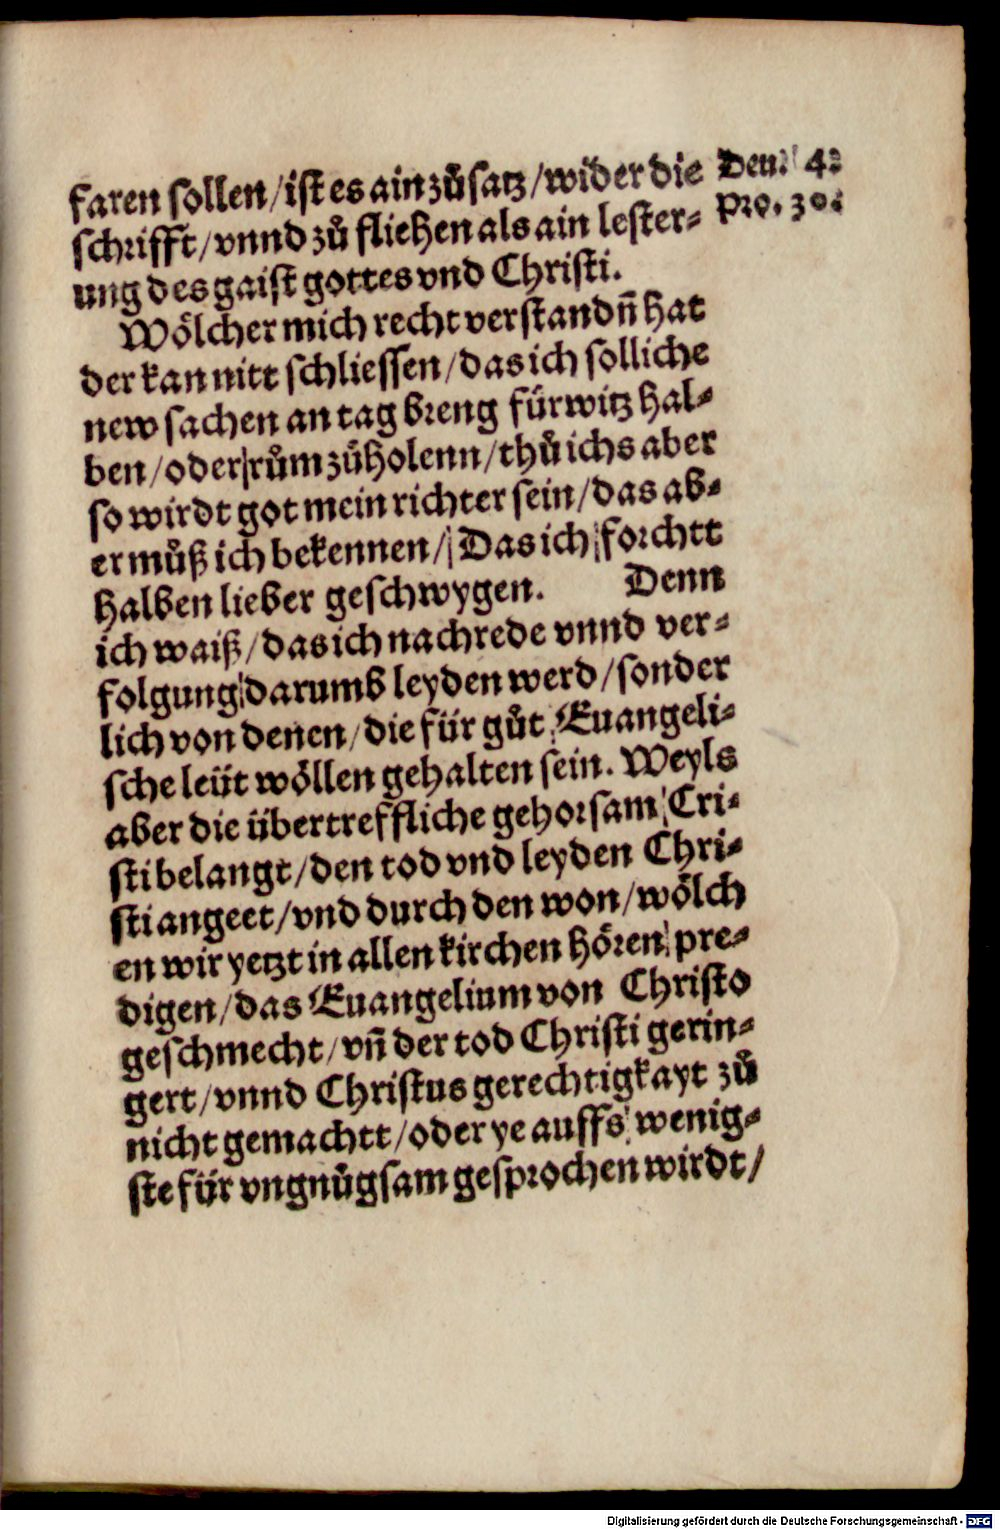 faren sollen/ist es ain zůsatz/wider die
schrifft/vnnd zů fliehen als ain lester-
ung des gaist gottes vnd Christi.
Deu. 4.
Pro. 30.
Wölcher mich recht verstandñ hat
der kan nitt schliessen/das ich solliche
new sachen an tag breng fürwitz hal-
ben/oder rům zůholenn/thů ichs aber
so wirdt got mein richter sein/das ab-
er můß ich bekennen/Das ich forchtt
halben lieber geschwygen. Denn
ich waiß/das ich nachrede vnnd ver-
folgung darumb leyden werd/sonder
lich von denen/die für gůt Euangeli-
sche leüt wöllen gehalten sein. Weyls
aber die übertreffliche gehorsam Cri-
sti belangt/den tod vnd leyden Chri-
sti angeet/vnd durch den won/wölch
en wir yetzt in allen kirchen hören pre-
digen/das Euangelium von Christo
geschmecht/vñ der tod Christi gerin-
gert/vnnd Christus gerechtigkayt zů
nicht gemachtt/oder ye auffs wenig-
ste für vngnůgsam gesprochen wirdt/
Digitalisierung gefördert durch die Deutsche Forschungsgemeinschaft - DFG